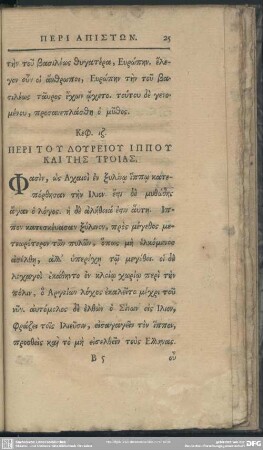 ΠΕΡΙ ΑΠΙΣΤΩΝ. 25
τὴν τοῦ βασιλέως θυγατέρα, Εὐρώπην. ἔλε-
γον οὖν οἱ ἄνθρωποι, Εὐρώπην τὴν τοῦ βα-
σιλέως ταῦρος ἔχων ᾤχετο. τούτου δὲ γενο-
μένου, προσανεπλάσθη ὁ μῦθος.
Κεφ. ιζ.
ΠΕΡΙ ΤΟΥ ΔΟΥΡΕΙΟΥ ΙΠΠΟΥ
ΚΑΙ ΤΗΣ ΤΡΟΙΑΣ.
Φασὶν, ὡς Ἀχαιοὶ ἐν ξυλίνῳ ἵππῳ κατε-
πόρθησαν τὴν Ἴλιον. ἔστι δὲ μυθώδης
ἄγαν ὁ λόγος. ἡ δὲ ἀλήθεια ἐστὶ αὕτη. ἵπ-
πον κατεσκεύασαν ξύλινον, πρὸς μέγεθος με-
τεωρότερον τῶν πυλῶν, ὅπως μὴ ἑλκόμενος
εἰσέλθῃ, ἀλλ' ὑπερέχῃ τῷ μεγέθει. οἱ δὲ
λοχαγοὶ ἐκάθηντο ἐν κοίλῳ χωρίῳ περὶ τὴν
πόλιν. ὃ Ἀργείων λόχος ἐκαλεῖτο μέχρι τοῦ
νῦν. αὐτόμολος δὲ ἐλθὼν ὁ Σίνων εἰς Ἴλιον,
φράζει τοῖς Ἰλιεῦσιν, εἰσαγαγεῖν τὸν ἵππον,
προσθεὶς καὶ τὸ μὴ εἰσελθεῖν τοὺς Ἕλληνας.
B 5 οὐ